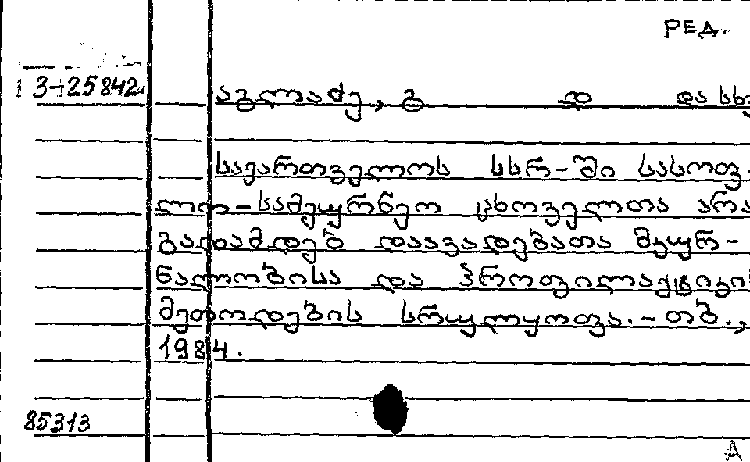 РЕД.
13-25842
აგლაძე, გ დ და სხვ
საქართველოს სსრ-ში სასოფ-
ლო-სამეურნეო ცხოველთა არა
გადამდებ დაავადებათა მკურ-
ნალობისა და პროფილაქტიკი
მეთოდების სრულყოფა.-თბ.,
1984.
85313
A